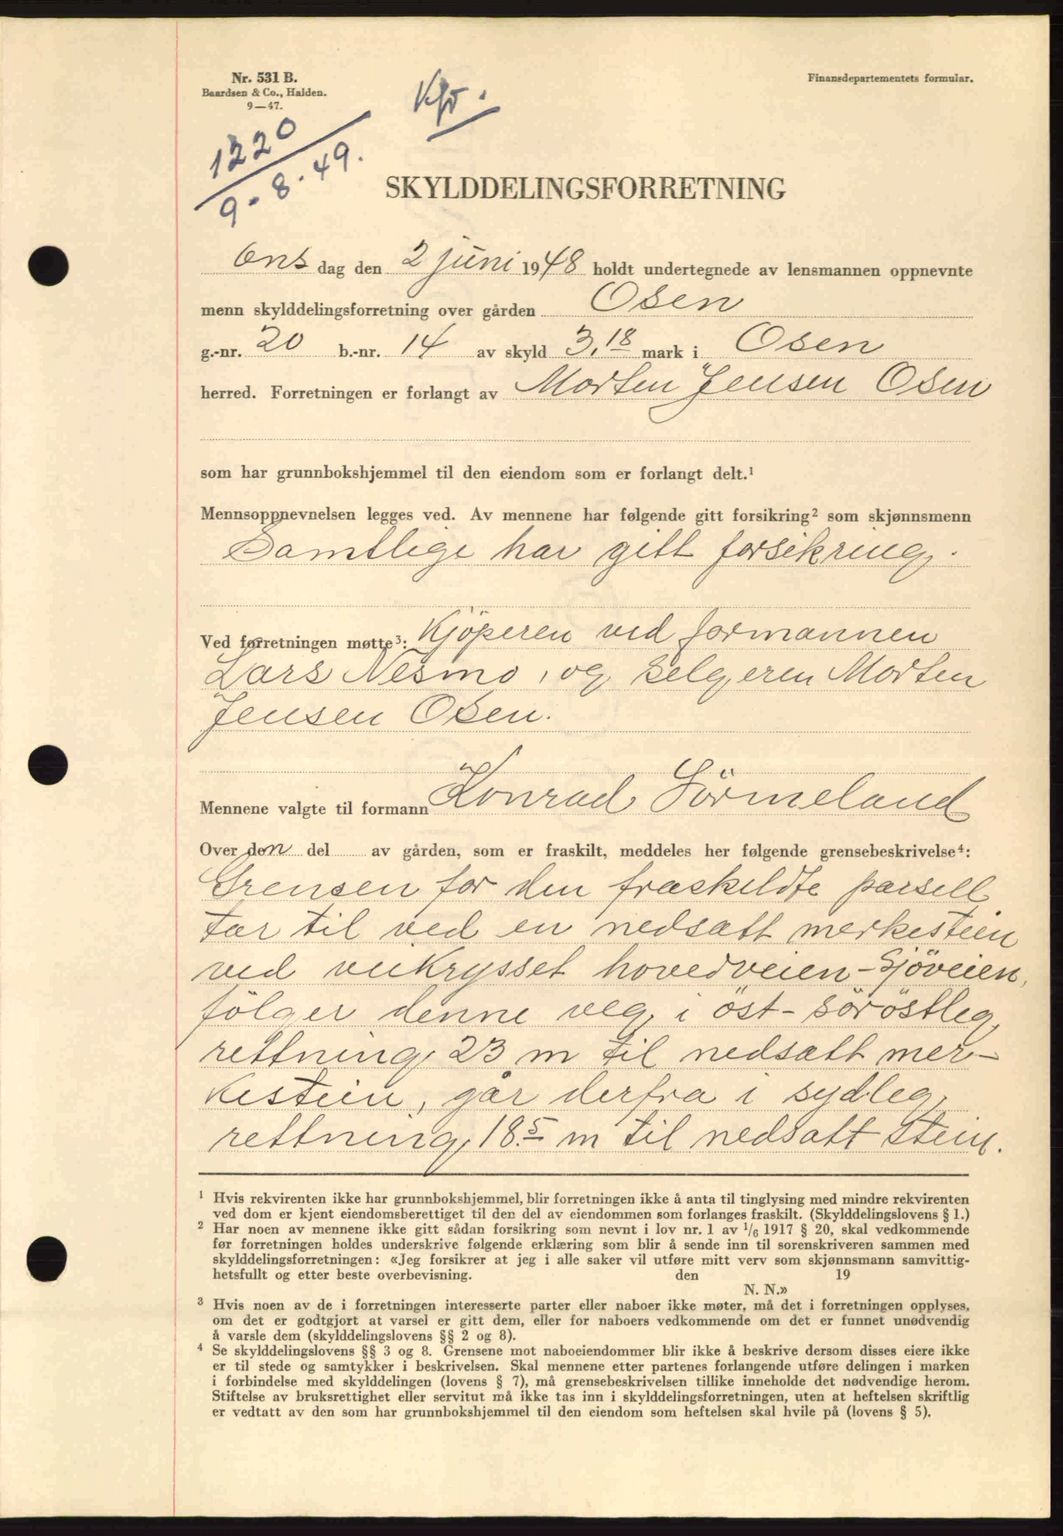 Nr. 531 B.
Baardsen & Co., Halden.
9—47.
Finansdepartementets formular.
Kfr.
1220
9-8-49.
SKYLDDELINGSFORRETNING
Ons dag den 2 juni 1948 holdt undertegnede av lensmannen oppnevnte
menn skylddelingsforretning over gården Osen
g.-nr. 20 b.-nr. 14 av skyld 3,18 mark i Osen
herred. Forretningen er forlangt av Morten Jensen Osen
som har grunnbokshjemmel til den eiendom som er forlangt delt.¹
Mennsoppnevnelsen legges ved. Av mennene har følgende gitt forsikring² som skjønnsmenn
Samtlige har gitt forsikring.
Ved forretningen møtte³: Kjöperen ved formannen
Lars Nesmo, og selgeren Morten
Jensen Osen.
Mennene valgte til formann Konrad Sörmeland
Over den del av gården, som er fraskilt, meddeles her følgende grensebeskrivelse⁴:
Grensen for den fraskildte parsell
tar til ved en nedsatt merkestein
ved veikrysset hovedveien-Sjöveien,
fölger denne veg i öst-söröstleg
rettning 23 m til nedsatt mer-
kestein, går derfra i sydleg
rettning 18.5 m til nedsatt stein.
¹ Hvis rekvirenten ikke har grunnbokshjemmel, blir forretningen ikke å anta til tinglysing med mindre rekvirenten
ved dom er kjent eiendomsberettiget til den del av eiendommen som forlanges fraskilt. (Skylddelingslovens § 1.)
² Har noen av mennene ikke gitt sådan forsikring som nevnt i lov nr. 1 av 1/6 1917 § 20, skal vedkommende
før forretningen holdes underskrive følgende erklæring som blir å sende inn til sorenskriveren sammen med
skylddelingsforretningen: «Jeg forsikrer at jeg i alle saker vil utføre mitt verv som skjønnsmann samvittig-
hetsfullt og etter beste overbevisning. den 19
N. N.»
³ Hvis noen av de i forretningen interesserte parter eller naboer ikke møter, må det i forretningen opplyses,
om det er godtgjort at varsel er gitt dem, eller for naboers vedkommende om det er funnet unødvendig
å varsle dem (skylddelingslovens §§ 2 og 8).
⁴ Se skylddelingslovens §§ 3 og 8. Grensene mot naboeiendommer blir ikke å beskrive dersom disses eiere ikke
er til stede og samtykker i beskrivelsen. Skal mennene etter partenes forlangende utføre delingen i marken
i forbindelse med skylddelingen (lovens § 7), må grensebeskrivelsen tillike inneholde det nødvendige herom.
Stiftelse av bruksrettighet eller servitut må ikke tas inn i skylddelingsforretningen, uten at heftelsen skriftlig
er vedtatt av den som har grunnbokshjemmel til den eiendom som heftelsen skal hvile på (lovens § 5).